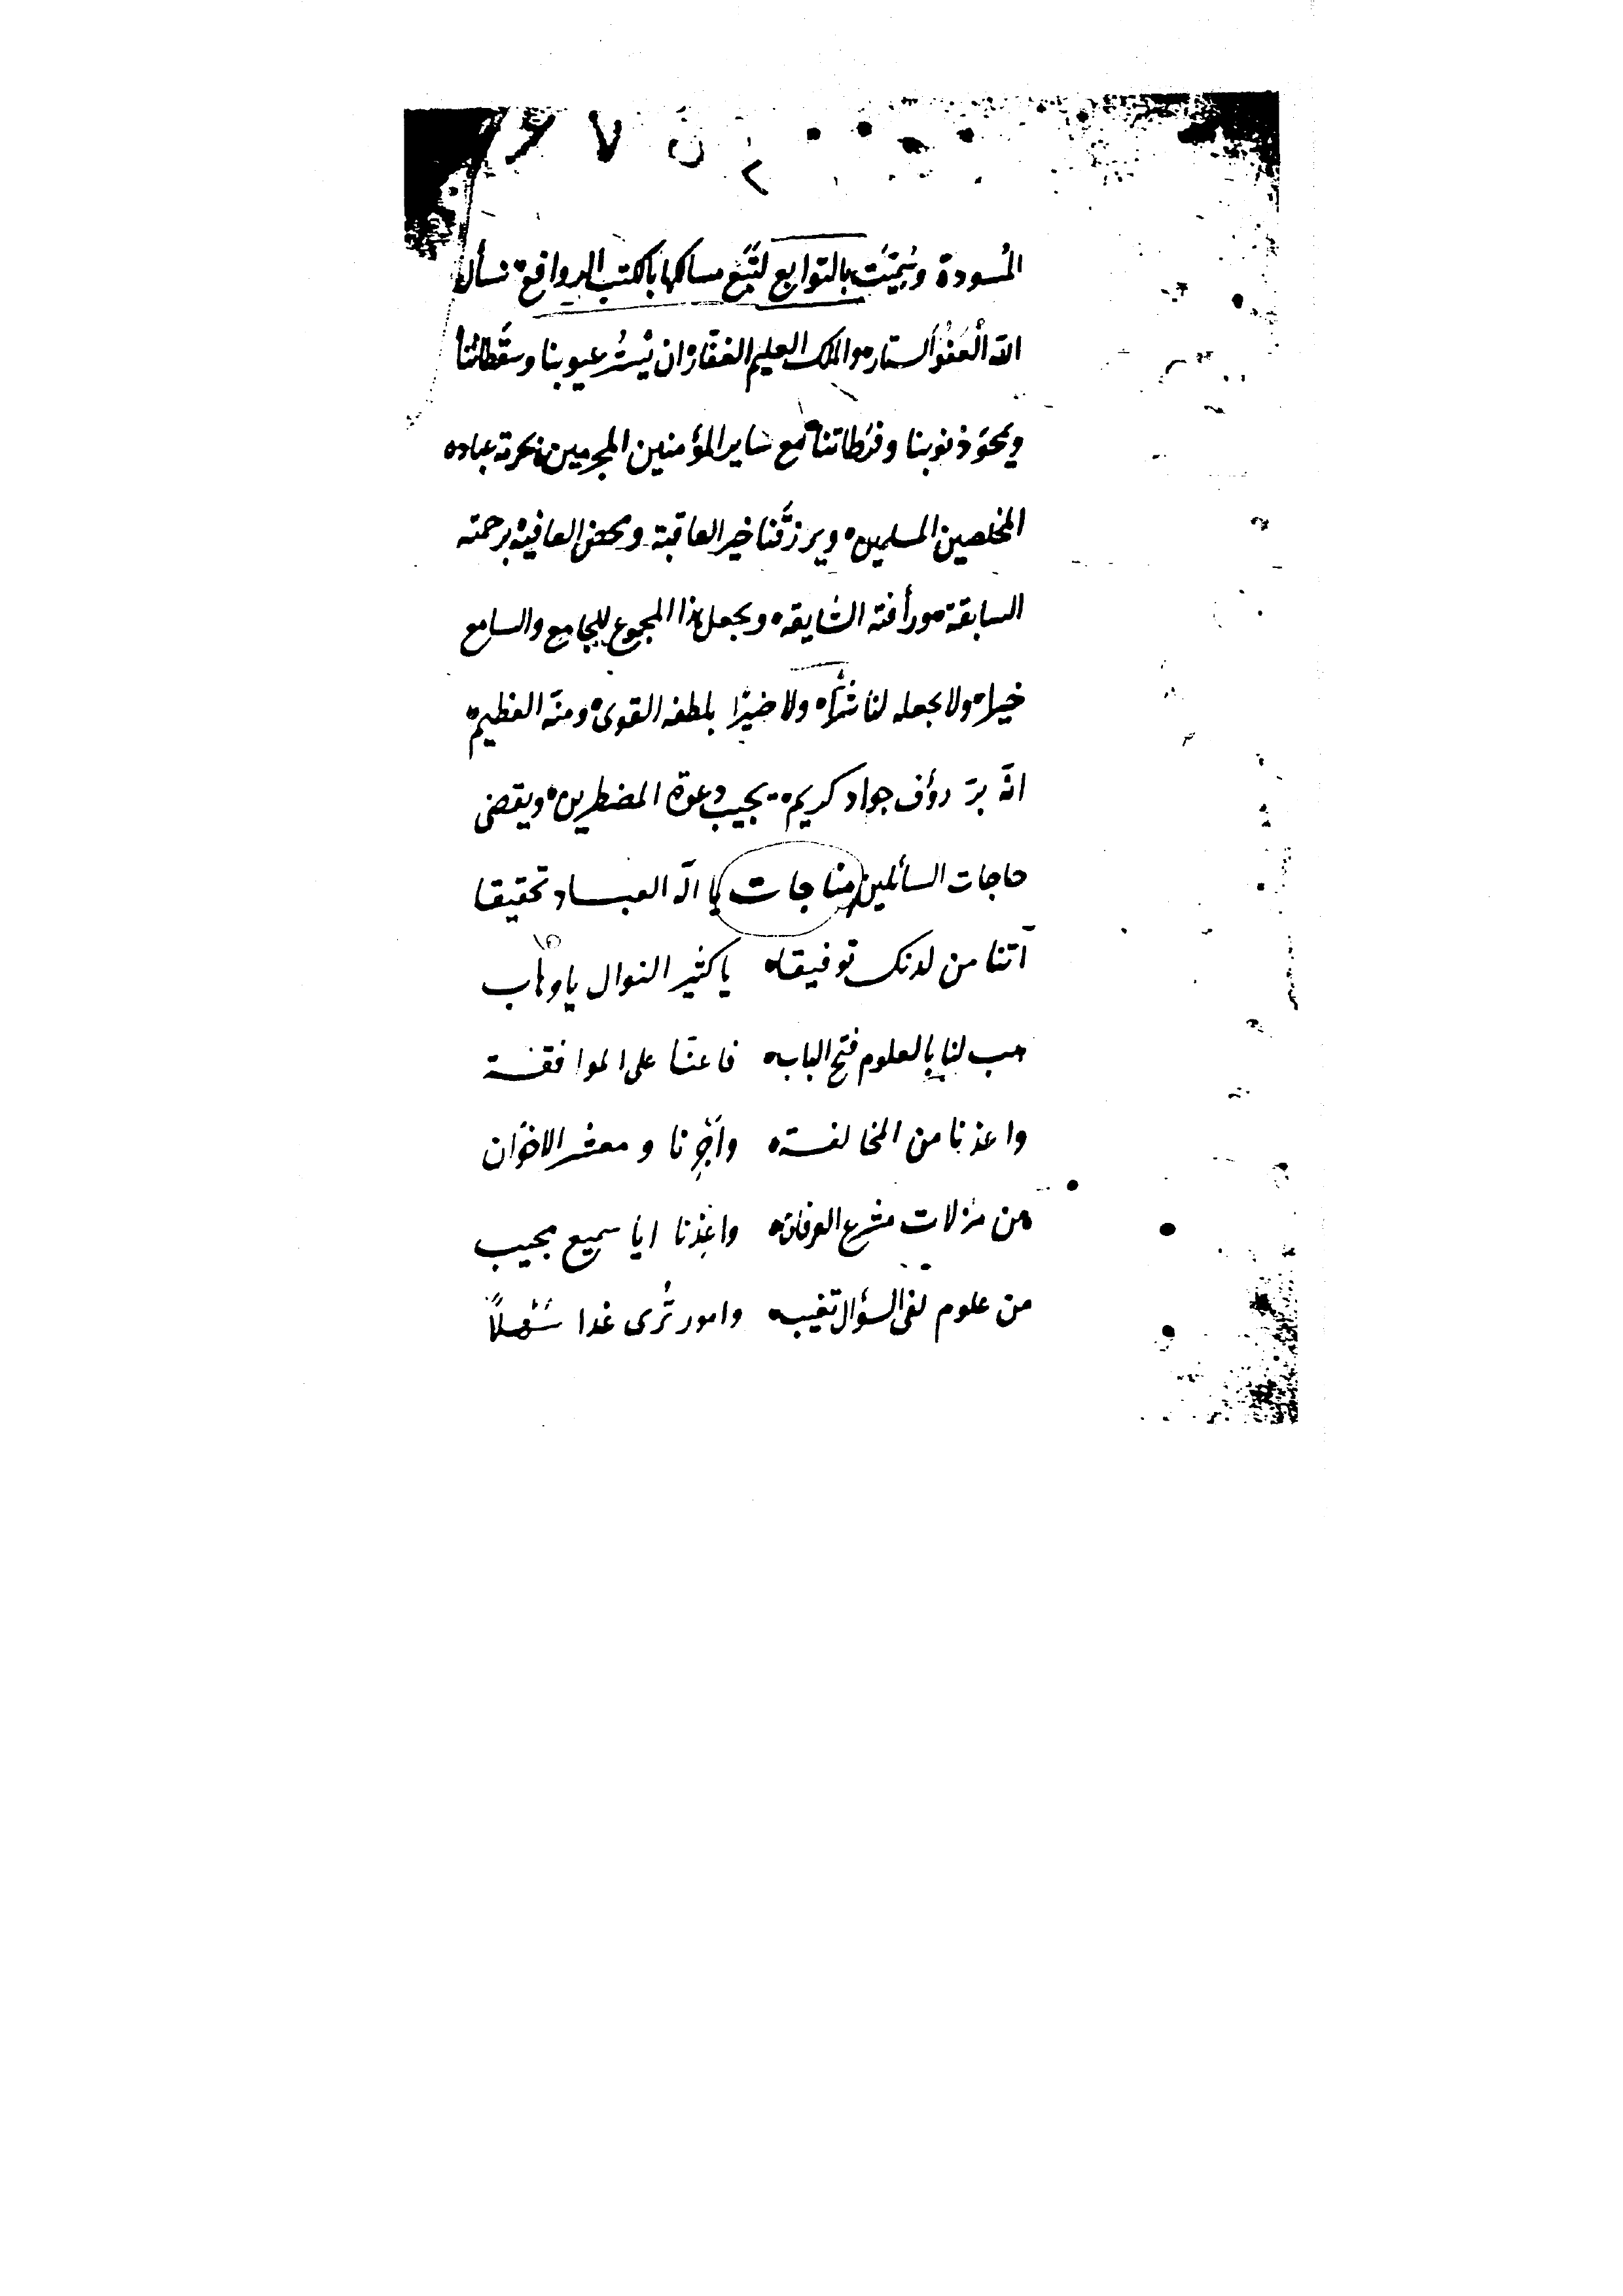 ٢
المسودة وسُمِّيَت بالتوابع لتَتَبُّع مسالكها بالكتب الروافع نسأل
الله العَفُوَّ الستار والملك العليم الغفّار ان يَستُر عيوبنا وسَقَطاتنا
ويمحوَ ذنوبنا وفَرَطاتنا مع ساير المؤمنين المجرمين بحرمة عباده
المخلصين المسلمين ويرزقَنا خير العاقبة ومحض العافية برحمته
السابقة ورأفته الشايقة ويجعل هذا المجموع للجامع والسامع
خيرا ولا يجعله لنا شَرّا ولا ضيرًا بلطفه القوى ومنّه العظيم
انّه برّ رؤف جواد كريم يجيب دعوة المضطرين ويقضى
حاجات السائلين مناجات يا الٓه العباد تحقيقا
آتنا من لدنك توفيقا ياكثير النوال يا وهاب
هب لنا بالعلوم فتح الباب فاعنّا على الموافقة
واعذنا من المخالفة وأَجِرْنا و معشر الاخوان
من مزلات مشرع العرفان واعِذنا ايا سميع مجيب
من علوم لفى السؤال تغيب وامور تُرى غدا سَهْلاً